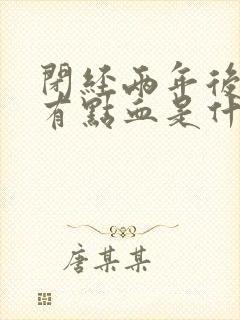 閉經兩年後
有點血是什
唐某某